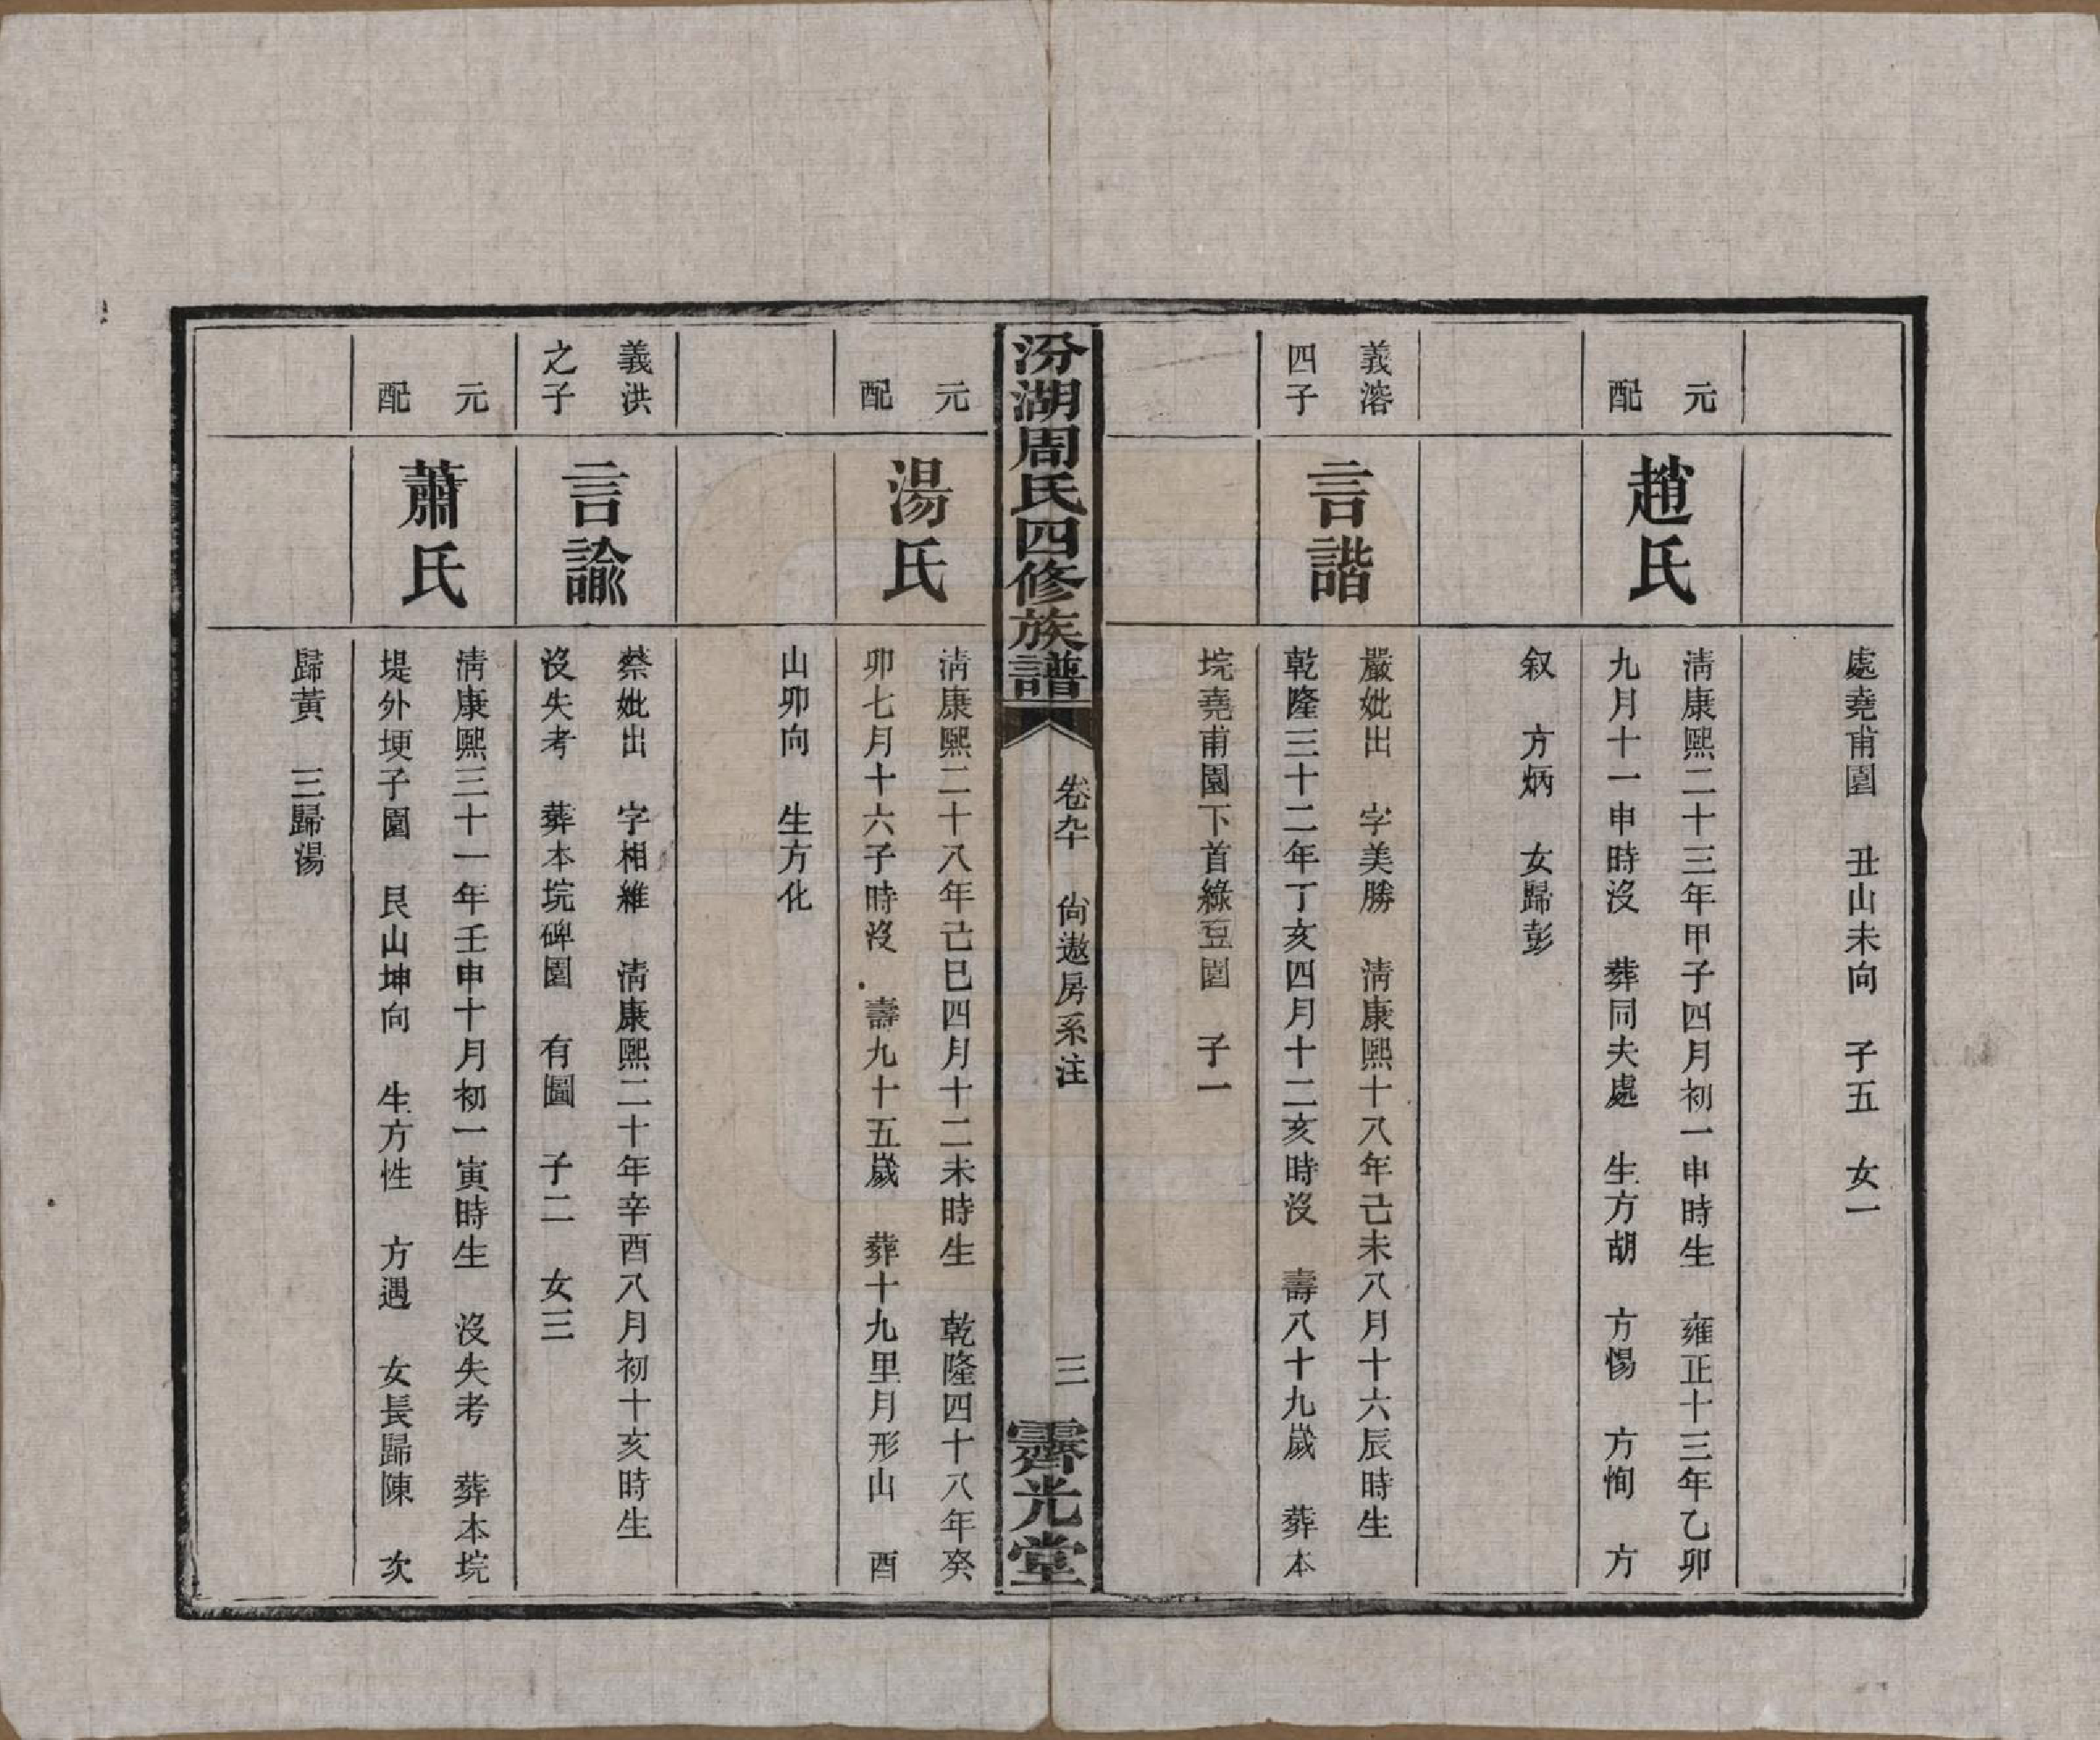 處堯甫園　丑山未向　子五　女一
元
配
趙氏
清康熙二十三年甲子四月初一申時生　雍正十三年乙卯
九月十一申時沒　葬同夫處　生方胡　方惕　方恂　方
叙　方炳　女歸彭
義溶
四子
言諧
嚴妣出　字美勝　清康熙十八年己未八月十六辰時生
乾隆三十二年丁亥四月十二亥時沒　壽八十九歲　葬本
垸堯甫園下首綠豆園　子一
汾湖周氏四修族譜
卷九十　尙遨房系注
三
霽光堂
元
配
湯氏
清康熙二十八年己巳四月十二未時生　乾隆四十八年癸
卯七月十六子時沒　壽九十五歲　葬十九里月形山　酉
山卯向　生方化
義洪
之子
言諭
蔡妣出　字相維　清康熙二十年辛酉八月初十亥時生
沒失考　葬本垸碑園　有圖　子二　女三
元
配
蕭氏
清康熙三十一年壬申十月初一寅時生　沒失考　葬本垸
堤外埂子園　艮山坤向　生方性　方遇　女長歸陳　次
歸黃　三歸湯